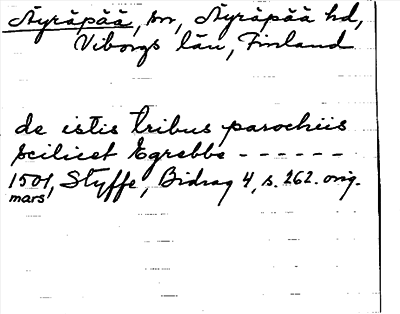 Äyräpää, sn, Äyräpää hd,
Viborgs län, Finland
de istis tribus parochiis
scilicet Egrebbe - - - - - -
1501, Styffe, Bidrag 4, s. 262. orig.
mars